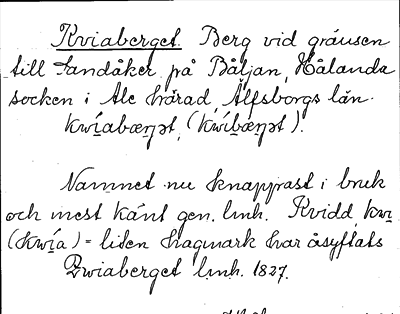 Kviaberget. Berg vid gränsen
till Sandåker på Båljan, Hålanda
socken i Ale härad, Älfsborgs län.
kwíabæņət, (kwíbæņət).
Namnet nu knappast i bruk
och mest känt gen. lmh. Kvidd, kwi
(kwía) = liten hagmark har åsyftats
Qwiaberget lmh. 1827.